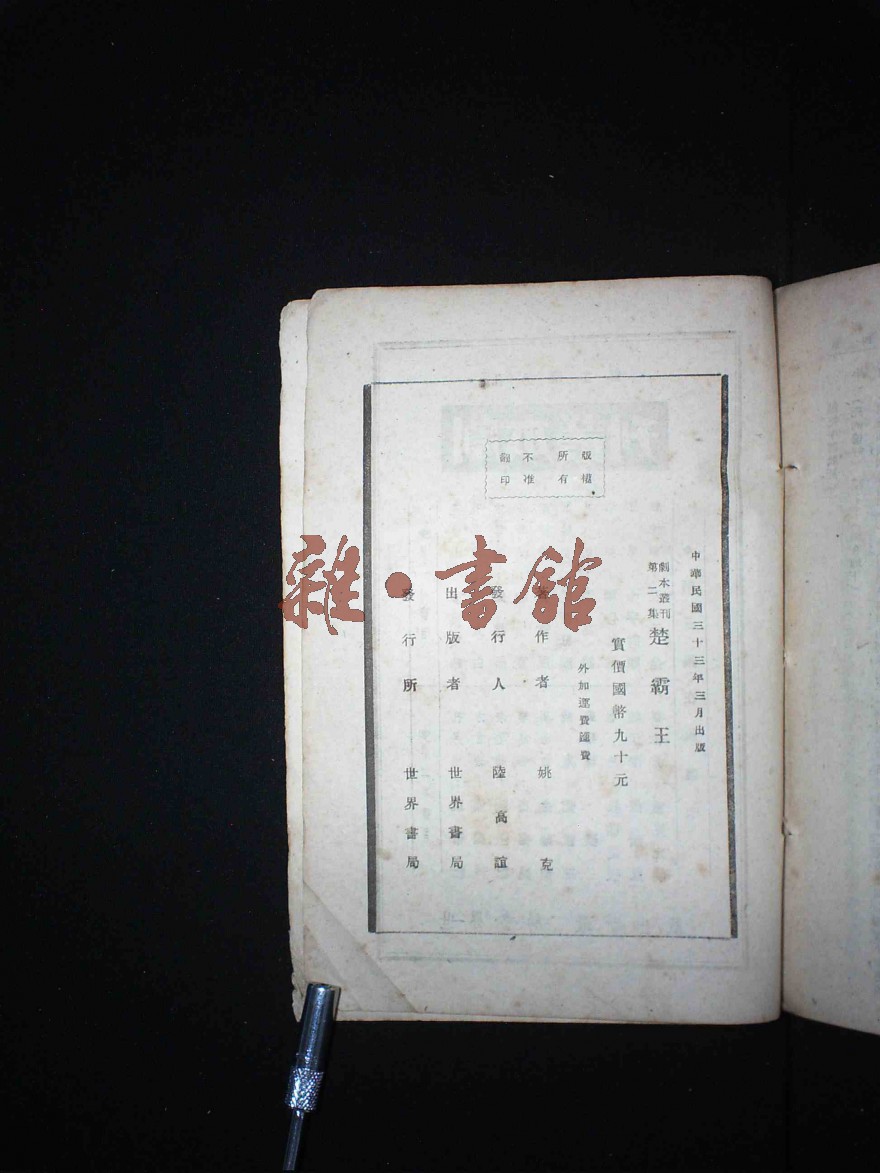 中華民國三十三年三月出版
劇本叢刊
第二集
楚霸王
實價國幣九十元
外加運費匯費
版權
所有
不准
翻印
著作者 姚克
發行人 陸高誼
出版者 世界書局
發行所 世界書局
雜·書館